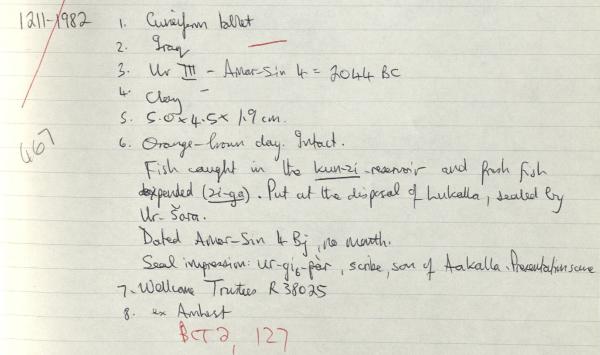 1211-1982
1. Cuneiform tablet
2. Iraq
3. Ur III - Amar-Sin 4 = 2044 BC
4. Clay -
5. 5.0 x 4.5 x 1.9 cm.
467
6. Orange-brown clay. Intact.
Fish caught in the kun-zi-reservoir and fresh fish
expended (zi-ga). Put at the disposal of Lukalla, sealed by
Ur-Šara.
Dated Amar-Sin 4 Bj, no month.
Seal impression: ur-gi6-pàr, scribe, son of Aakalla. Presentation scene
7. Wellcome Trustees R 38025
8. ex Amherst
BCT 2, 127